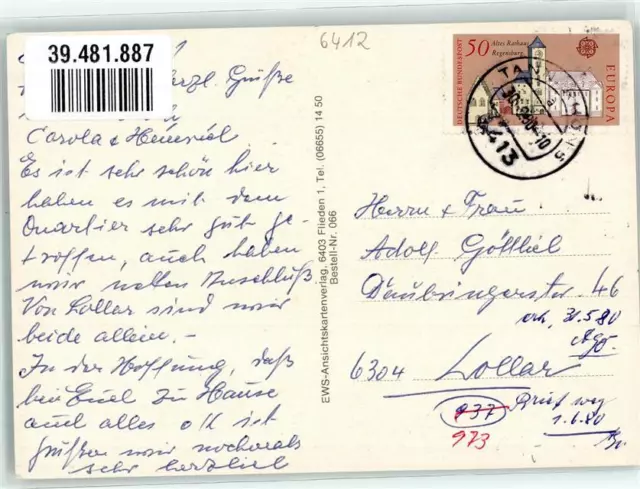 39.481.887
6412
herzl. Grüße
Carola & Heinrich
Es ist sehr schön hier
haben es mit dem
Quartier sehr gut ge-
troffen, auch haben
wir netten Anschluß
Von Lollar sind wir
beide allein. -
In der Hoffnung, daß
bei Euch zu Hause
auch alles o/k ist
grüßen wir nochmals
sehr herzlich
EWS-Ansichtskartenverlag, 6403 Flieden 1, Tel. (06655) 14 50
Bestell-Nr. 066
DEUTSCHE BUNDESPOST
50
Altes Rathaus
Regensburg
EUROPA
TANN
6413
Herrn & Frau
Adolf Göttlich
Daubringerstr 46
erh. 31.5.80
6304 Lollar
937
973
Brief weg
1.6.80